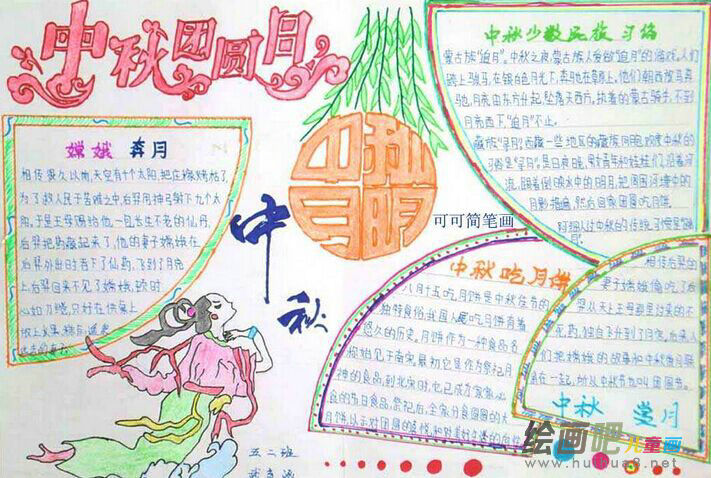 中秋团圆日
嫦娥 奔月
相传很久以前,天空有十个太阳,把庄稼烤枯了,
为了救人民于苦难之中,后羿用神弓射下九个太
阳,于是王母赐给他一包长生不老的仙丹,
后羿把药藏起来了,他的妻子嫦娥在
后羿外出时吞下了仙药,飞到了月宫
上后羿回来不见了嫦娥,顿时
心如刀绞,只好在供案上
放上水果
中秋
中秋
月明
可可简笔画
中秋少数民族习俗
蒙古族“追月”。中秋之夜,蒙古族人爱做“追月”的游戏。人们
跨上骏马,在银白色月光下,奔驰在草原上。他们朝西放马奔
驰,月亮由东方升起,坠落天西方。执着的蒙古骑手,不到
月亮西下“追月”不止。
藏族“寻月”西藏一些地区的藏族同胞欢度中秋的
习俗是“寻月”。是日夜晚,男女青年和娃娃们,沿着河
流,跟着倒映水中的明月,把周围河塘中的
月影
然后回家团圆吃月饼。
中秋吃月饼
八月十五吃月饼是中秋佳节的
独特食俗,我国人民吃月饼有着
悠久的历史。月饼作为一种食品名
称始见于南宋。最初它是作为祭祀月
神的食品,到北宋时,它已成为家家必
食的节日食品。祭祀后,全家分食圆圆的大
月饼以示对团圆的喜悦,和对美好生活的向往
相传后羿的
妻子嫦娥偷吃了后
羿从天上王母那里讨来的不
死药,独自飞升到了月宫。后来人
们把嫦娥的故事和中秋节习联
系在一起,所以中秋节也叫团圆节。
中秋 赏月
五二班
绘画吧 儿童画
www.huihua8.net